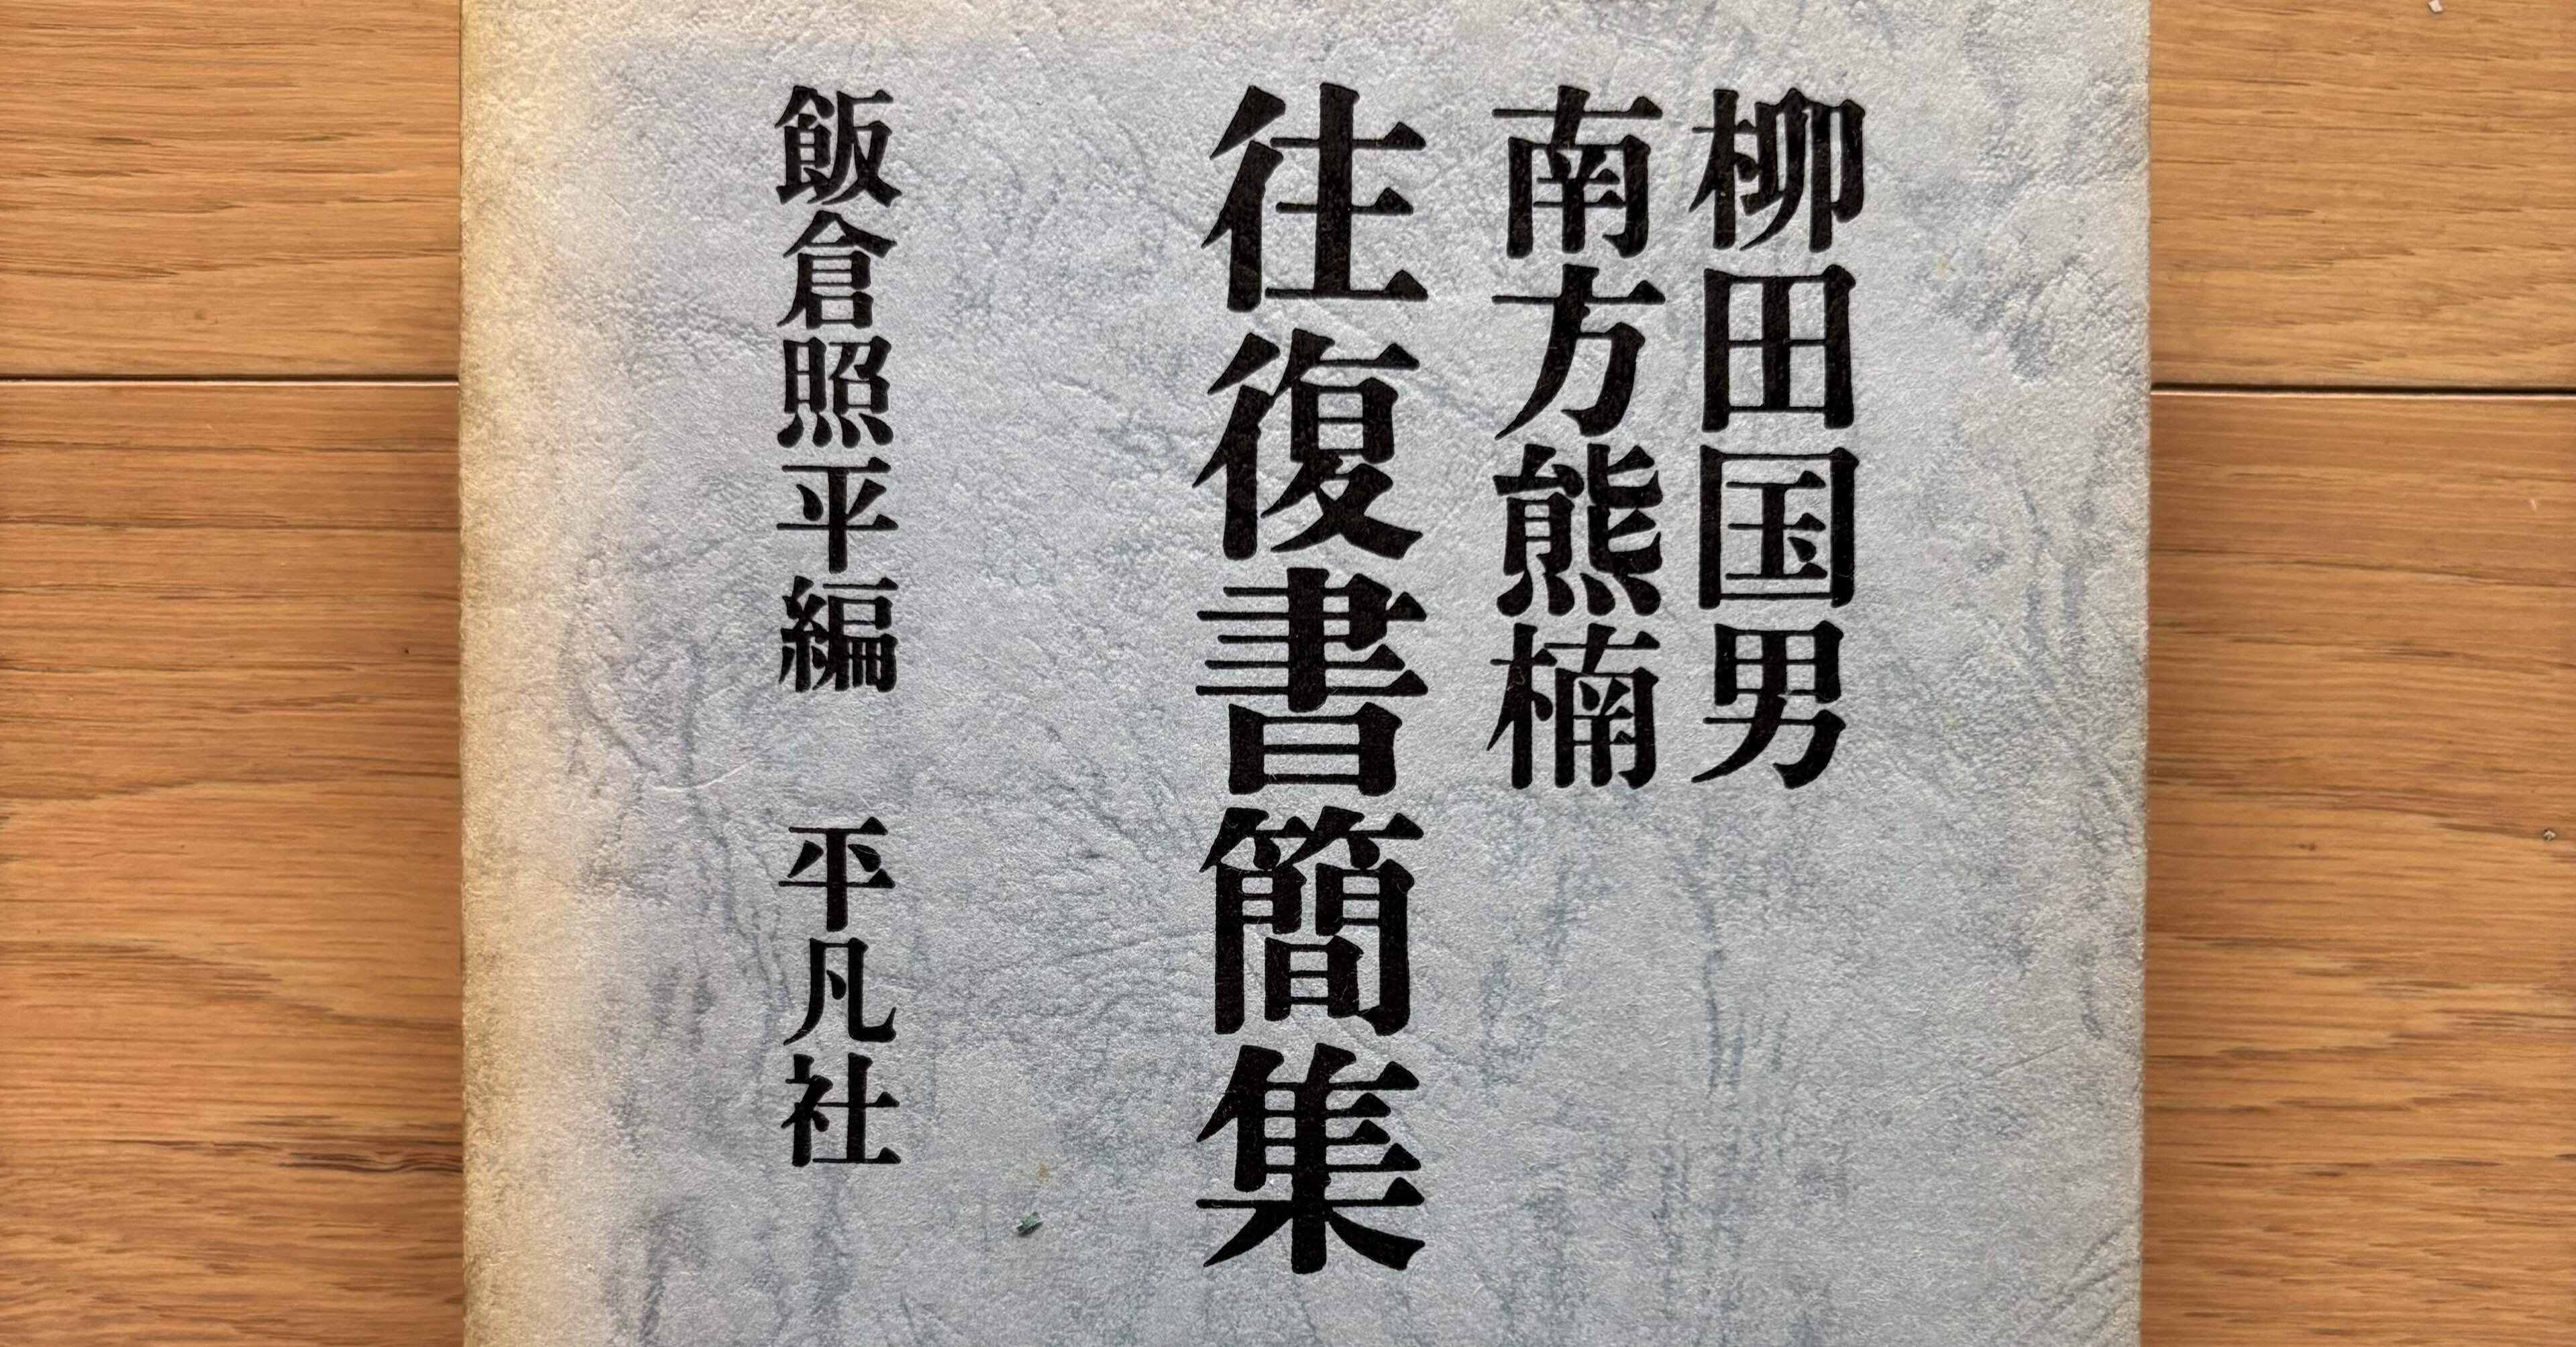 柳田国男
南方熊楠
往復書簡集
飯倉照平編　平凡社